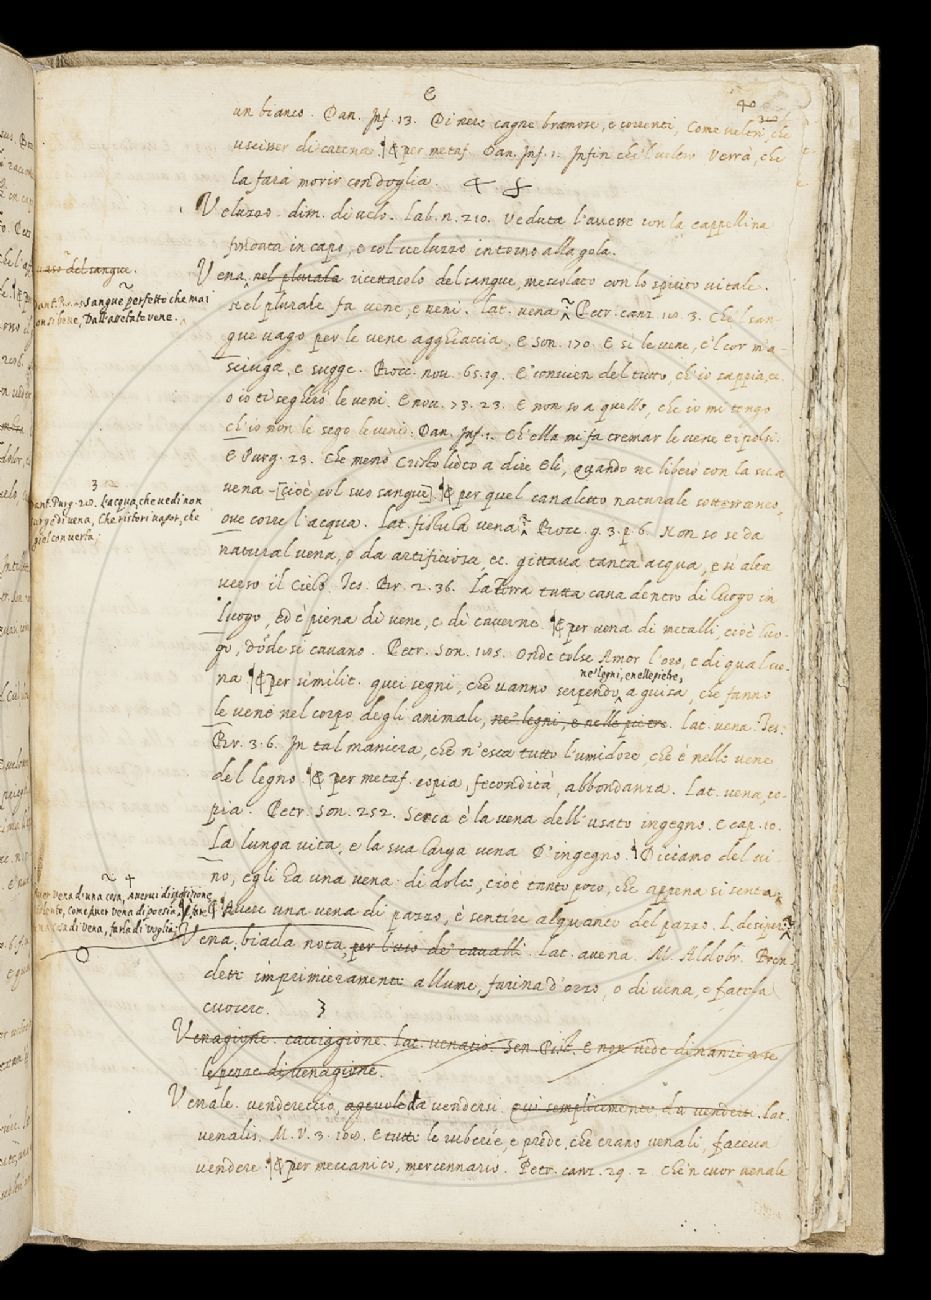 e
40
un bianco. Dan. Inf. 13. Di nere cagne bramose, e correnti, Come veltri, che
uscisser di catena. ¶ & per metaf. Dan. Inf. 1. Infin che'l veltro Verrà, che
la farà morir con doglia.
Veluzzo. dim. di velo. Lab. n. 210. veduta l'avesse con la cappellina
fondata in capo, e col veluzzo intorno alla gola.
vaso del sangue.
Vena, nel plurale ricettacolo del sangue, mescolato con lo spirito vitale.
sangue perfetto che mai
non si beve, Dall'assetate vene.
Nel plurale fa vene, e veni. lat. vena Petr. canz. 10. 3. Che'l san-
gue vago per le vene agghiaccia. E son. 170. E sì le vene, e'l cor m'a-
sciuga, e sugge. Bocc. nov. 65. 19. E convien del tutto, ch'io sappia,
o io ti segherò le veni. E nov. 73. 23. E non so a quello, che io mi tengo
ch'io non le sego le veni. Dan. Inf. 1. Ch'ella mi fa tremar le vene e i polsi.
E Purg. 23. Che menò Cristo lieto a dire Elì, Quando ne liberò con la sua
vena [cioè col suo sangue] ¶ & per quel canaletto naturale sotterraneo,
3
Dant. Purg. 28. L'acqua, che vedi non
surge di vena, Che ristori vapor, che
giel converta.
ove corre l'acqua. Lat. fistula vena Bocc. g. 3. p. 6. Non so se da
natural vena, o da artificiosa, ec. gittava tanta acqua, e sì alta
verso il Cielo. Tes. Br. 2. 36. La terra tutta cava dentro di luogo in
luogo, ed è piena di vene, e di caverne. ¶ & per vena di metalli, cioè luo-
go, dóde si cavano. Petr. Son. 185. Onde tolse Amor l'oro, e di qual ve-
na ¶ & per similit. quei segni, che vanno serpendo ne' legni, e nelle pietre, a guisa, che fanno
le vene nel corpo degli animali, ne' legni, e nelle pietre. lat. vena. Tes.
Br. 3. 6. In tal maniera, che n'esca tutto l'umidore che è nelle vene
del legno. ¶ & per metaf. copia, fecondità, abbondanza. Lat. vena, co-
pia. Petr. Son. 252. Secca è la vena dell'usato ingegno. E cap. 10.
La lunga vita, e la sua larga vena D'ingegno. ¶ Diciamo del vi-
no, egli ha una vena di dolce, cioè tanto poco, che appena si senta.
Aver vena d'una cosa, avervi disposizione
come Aver vena di poesia, ¶ fare
una cosa di vena, farla di voglia
Avere una vena di pazzo, è sentire alquanto del pazzo. L. desipere
Vena, biada nota, per l'uso de' cavalli. lat. avena. M. Aldobr. Pren-
dete imprimieramente allume, farina d'orzo, o di vena, e faccia
cuocere. 3
Venagione. cacciagione. lat. venatio. Sen. Pist. E non vede dinanzi a se
le pezze di venagione.
Venale. vendereccio, agevole da vendersi. qui semplicemente da vendersi. lat.
venalis. M. V. 3. 108. E tutte le ruberíe, e prede, che erano venali, faceva
vendere. ¶ & per meccanico, mercennario. Petr. canz. 29. 2. Che'n cuor venale